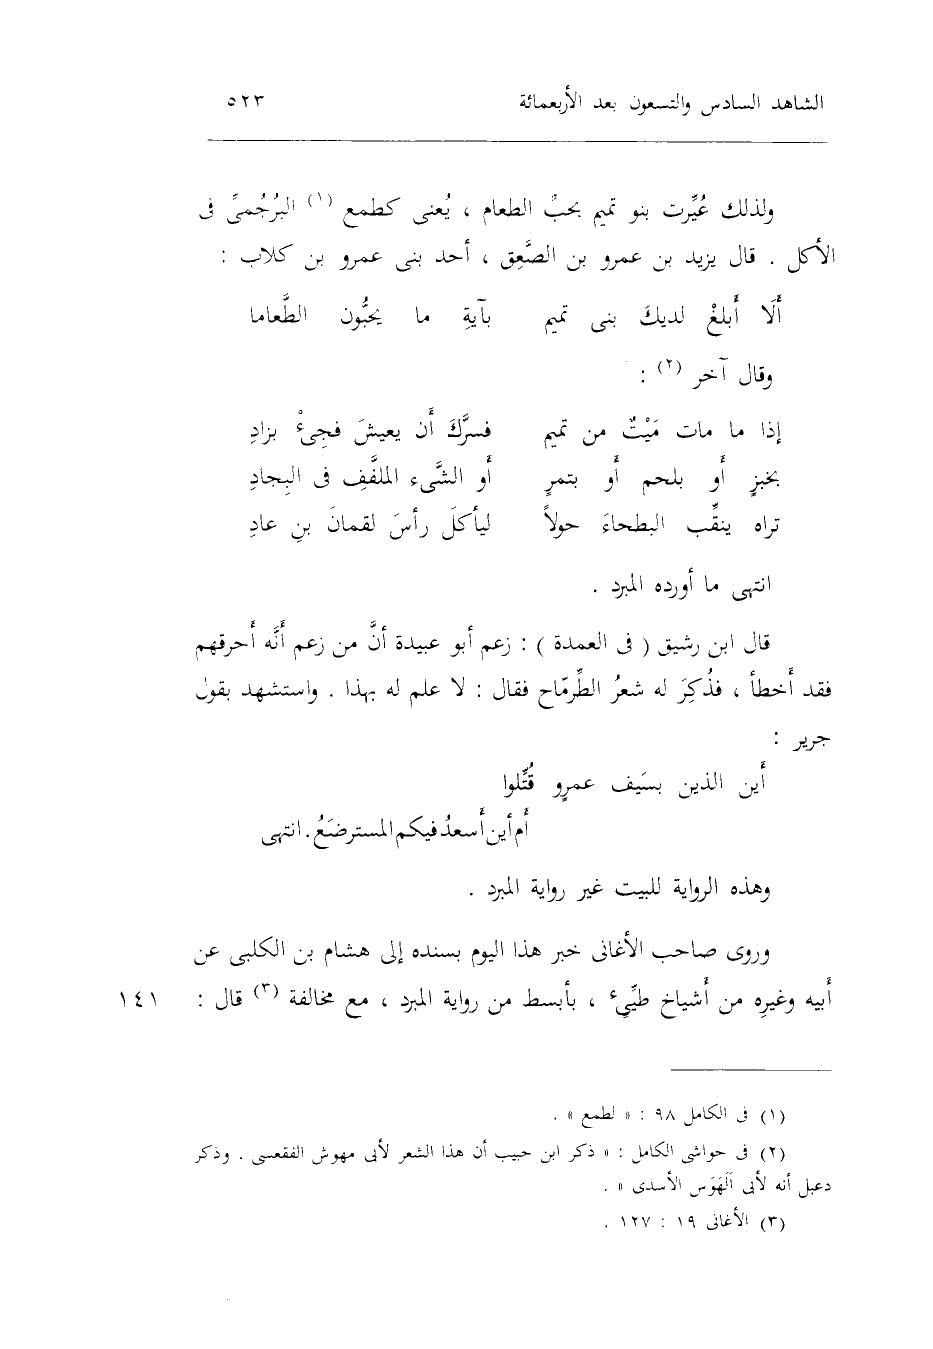 الشاهد السادس والتسعون بعد الأربعمائة ٥٢٣
ولذلك عُيِّرت بنو تميم بحبِّ الطعام ، يُعنى كطمع (١) البرُجُميِّ فى
الأكل . قال يزيد بن عمرو بن الصَّعِق ، أحد بنى عمرو بن كلاب :
أَلَا أَبلغْ لديكَ بنى تميم بآيةِ ما يحبُّون الطَّعاما
وقال آخر (٢) :
إذا ما مات مَيْتٌ من تميم فسرَّكَ أَن يعيشَ فجىءْ بزادِ
بخبزٍ أَو بلحم أَو بتمرٍ أَو الشَّىء الملفَّفِ فى البِجادِ
تراه ينقِّب البطحاءَ حولاً ليأكلَ رأسَ لقمانَ بنِ عادِ
انتهى ما أورده المبرد .
قال ابن رشيق ( فى العمدة ) : زعم أبو عبيدة أنَّ من زعم أَنَّه أَحرقهم
فقد أَخطأ ، فذُكِرَ له شعرُ الطِّرمّاح فقال : لا علم له بهذا . واستشهد بقول
جرير :
أَين الذين بسَيف عمرٍو قُتِّلوا
أَم أين أَسعدُ فيكم المسترضَعُ . انتهى
وهذه الرواية للبيت غير رواية المبرد .
وروى صاحب الأغانى خبر هذا اليوم بسنده إلى هشام بن الكلبى عن
أَبيه وغيرِه من أَشياخ طيِّىء ، بأبسط من رواية المبرد ، مع مخالفة (٣) قال : ١٤١
(١) فى الكامل ٩٨ : « لطمع » .
(٢) فى حواشى الكامل : « ذكر ابن حبيب أن هذا الشعر لأبى مهوش الفقعسى . وذكر
دعبل أنه لأبى الهَوَس الأسدى » .
(٣) الأغانى ١٩ : ١٢٧ .